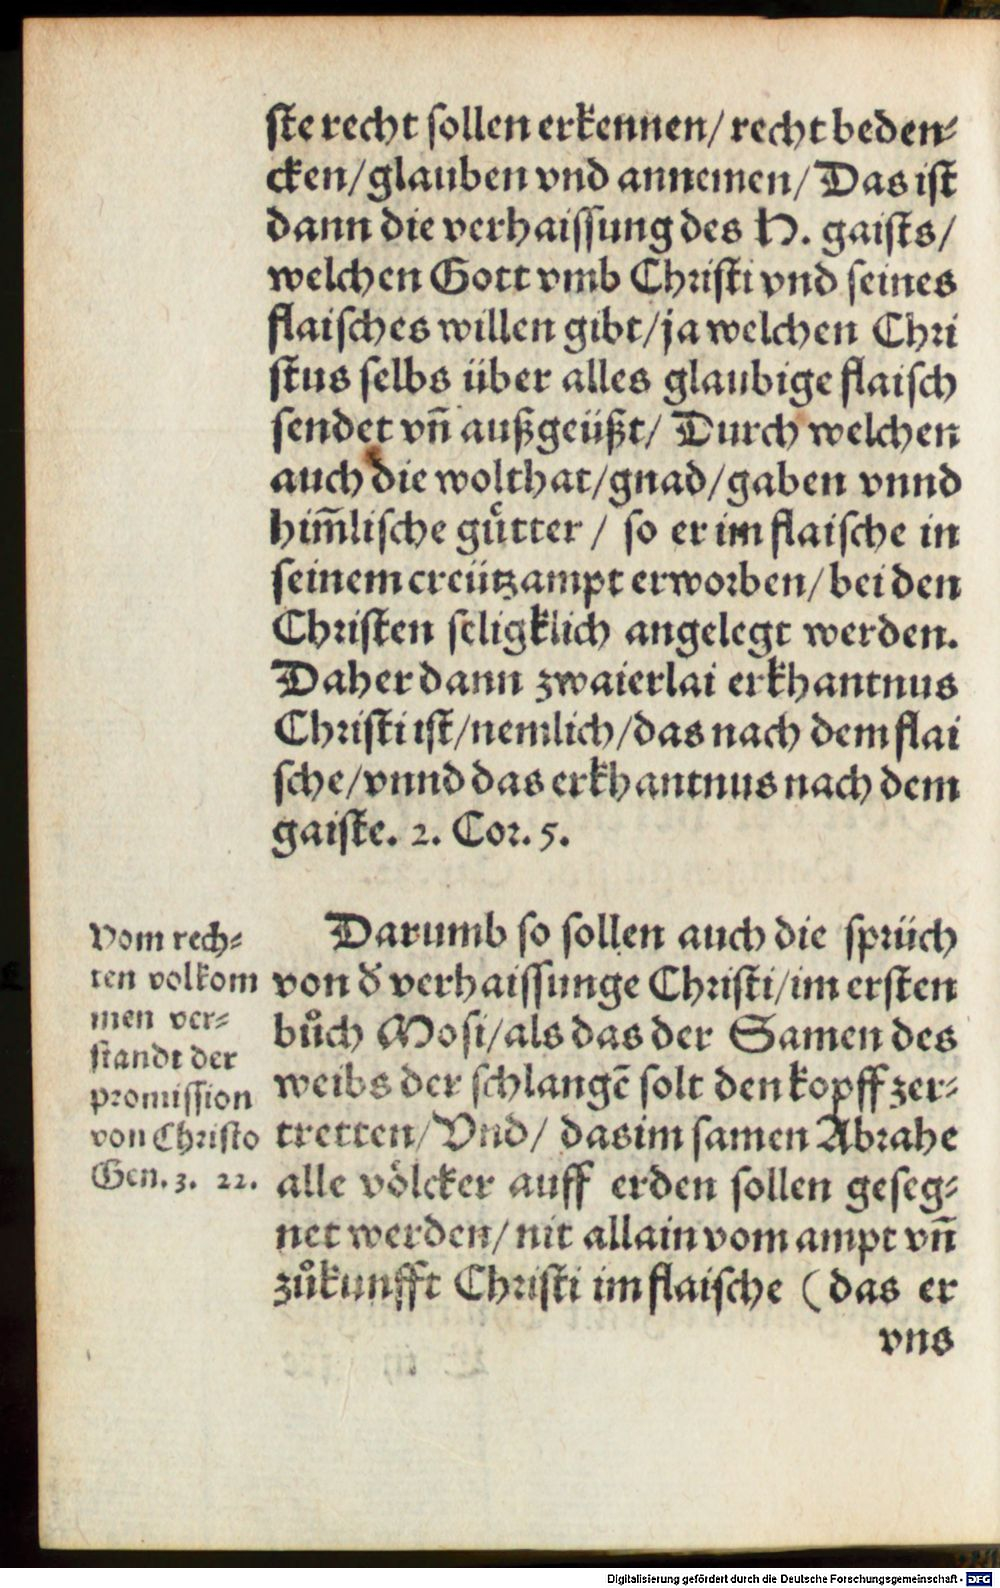 ste recht sollen erkennen/ recht beden⸗
cken/ glauben vnd annemen/ Das ist
dann die verhaissung des H. gaists/
welchen Gott vmb Christi vnd seines
flaisches willen gibt/ ja welchen Chri
stus selbs über alles glaubige flaisch
sendet vñ außgeüßt/ Durch welchen
auch die wolthat/ gnad/ gaben vnnd
him̃lische guͤtter / so er im flaische in
seinem creützampt erworben/ bei den
Christen seligklich angelegt werden.
Daher dann zwaierlai erkhantnus
Christi ist/ nemlich/ das nach dem flai
sche/ vnnd das erkhantnus nach dem
gaiste. 2. Cor. 5.
Darumb so sollen auch die sprüch
von d̕ verhaissunge Christi/ im ersten
buͦch Mosi/ als das der Samen des
weibs der schlangẽ solt den kopff zer⸗
tretten/ Vnd/ das im samen Abrahe
alle voͤlcker auff erden sollen geseg⸗
net werden/ nit allain vom ampt vñ
zuͦkunfft Christi im flaische (das er
vns
Vom rech⸗
ten volkom
men ver⸗
standt der
promission
von Christo
Gen. 3. 22.
Digitalisierung gefördert durch die Deutsche Forschungsgemeinschaft - DFG